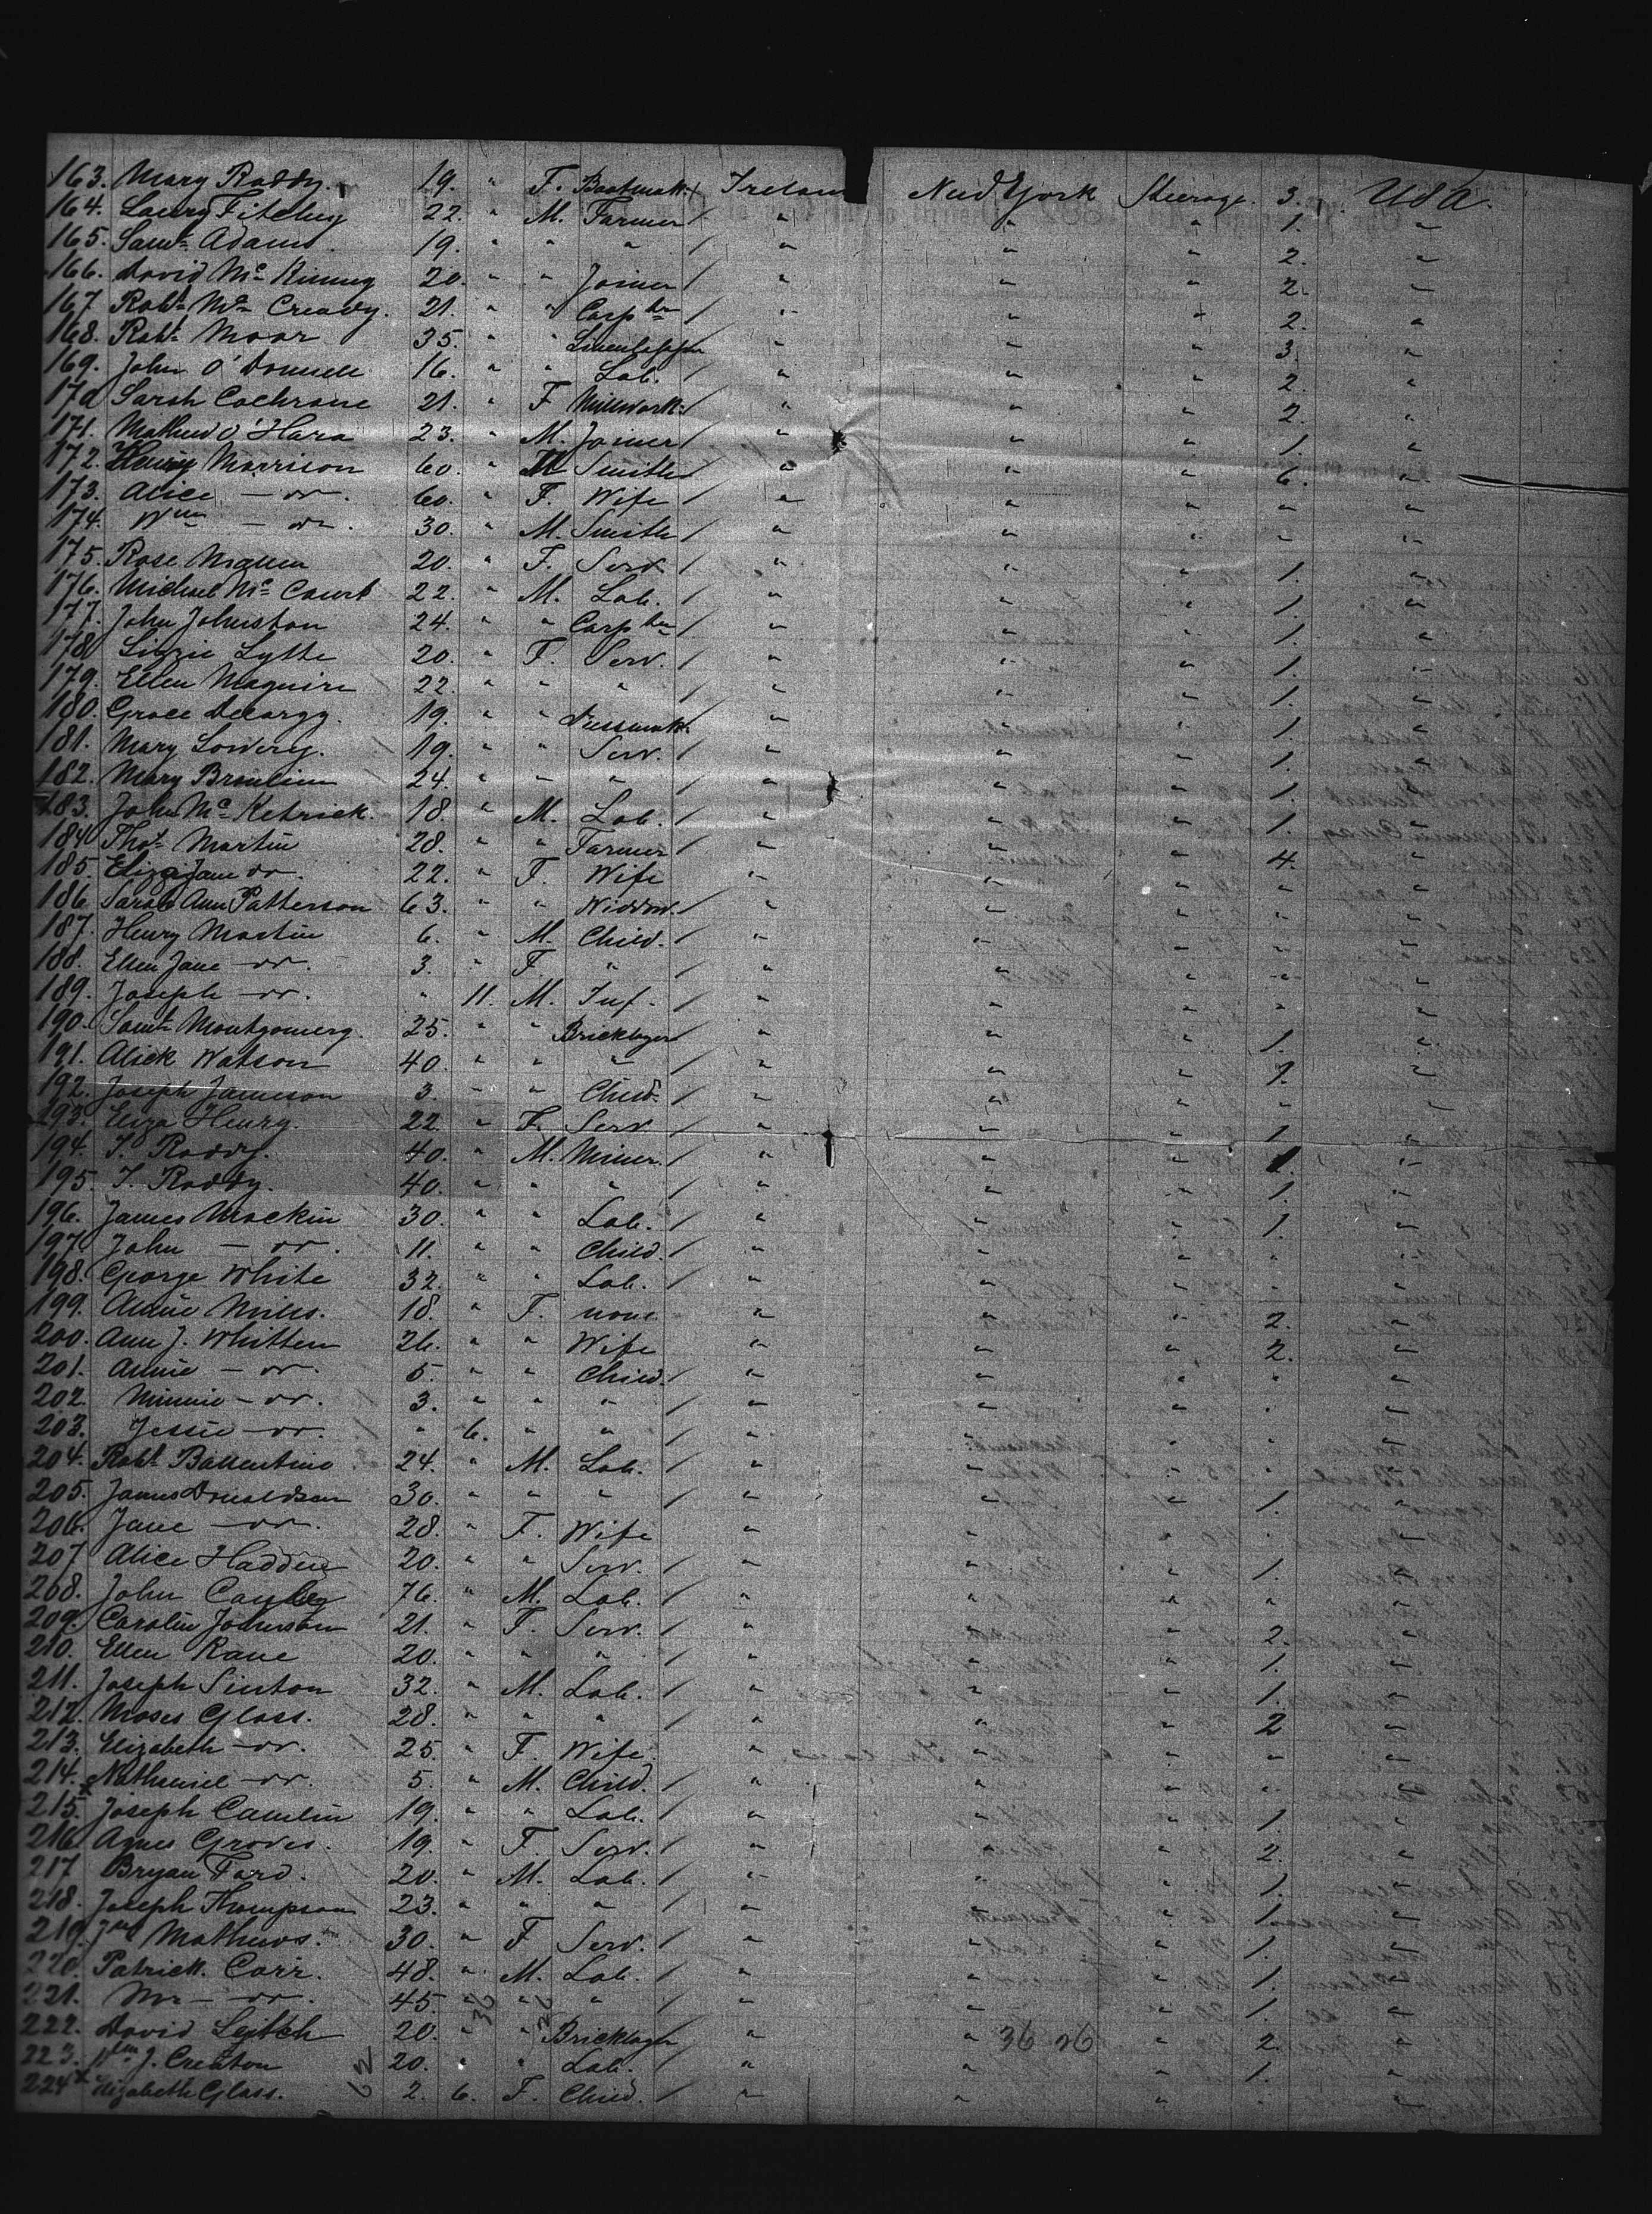 163. Mary Roddy. 19. " F. Bootmak. / Ireland New York Steerage. 3. U S A.
164. 22. " M. Farmer / " " " 1. "
165. Saml. Adams. 19. " " " / " " " 2. "
166. David Mc Kinney 20. " " Joiner / " " " 2. "
167. Robt. Mc Cready. 21. " " Carp ter / " " " 2. "
168. Robt. Moor 35. " " / " " " 3. "
169. John O'Donnell 16. " " Lab. / " " " 2. "
170. Sarah Cochrane 21. " F. Millwork. / " " " 2. "
171. Mathew O'Hara 23. " M. Joiner / " " " 1. "
172. Henry Morrison 60. " M. Smith / " " " 6. "
173. Alice - do. 60. " F. Wife / " " " " "
174. Wm - do. 30. " M. Smith / " " " " "
175. Rose 20. " F. Serv. / " " " 1. "
176. Michael Mc Court 22. " M. Lab. / " " " 1. "
177. John Johnston 24. " " Carp ter / " " " 1. "
178. Lizzie Lytte 20. " F. Serv. / " " " 1. "
179. Ellen Maguire 22. " " " / " " " 1. "
180. Grace Decargy. 19. " " Dressmak. " " " 1. "
181. Mary Lowery. 19. " " Serv. / " " " 1. "
182. Mary 24. " " " / " " " 1. "
183. John Mc Ketrick. 18. " M. Lab. / " " " 1. "
184. Thos. Martin 28. " " Farmer / " " " 4. "
185. Eliza Jane do. 22. " F. Wife " " " " "
186. Sarah Ann Patterson 63. " " Widdow. / " " " " "
187. Henry Martin 6. " M. Child. / " " " " "
188. Ellen Jane - do. 3. " F. " / " " " " "
189. Joseph - do. " 11. M. Inf. / " " " " "
190. Saml. Montgomery. 25. " " Bricklayer / " " " 1. "
191. Alick Watson 40. " " " / " " " 1. "
192. Joseph Jameson 3. " " Child. / " " " " "
193. Eliza Henry. 22. " F. Serv. / " " " 1. "
194. T. Roddy. 40. " M. Miner. / " " " 1. "
195. T. Roddy. 40. " " " / " " " 1. "
196. James Mackin 30. " " Lab. / " " " 1. "
197. John - do. 11. " " Child. / " " " " "
198. George White 32. " " Lab. / " " " " "
199. Annie Mills. 18. " F. none. " " " 2. "
200. Ann J. Whitten 26. " " Wife " " " 2. "
201. Annie - do. 5. " " Child. / " " " " "
202. Minnie - do. 3. " " " / " " " " "
203. Jessie - do. " 6. " " / " " " " "
204. Robt. Ballentine 24. " M. Lab. / " " " " "
205. James Donaldson 30. " " " / " " " 1. "
206. Jane - do. 28. " F. Wife " " " " "
207. Alice Hadden 20. " " Serv. / " " " 1. "
208. John 76. " M. Lab. / " " " " "
209. Carolin Johnson 21. " F. Serv. / " " " 2. "
210. Ellen Kane 20. " " " / " " " 1. "
211. Joseph Sinton 32. " M. Lab. / " " " 1. "
212. Moses Glass. 28. " " " / " " " 2 "
213. Elizabeth - do. 25. " F. Wife. " " " " "
214. Nathaniel - do. 5. " M. Child. / " " " " "
215. Joseph Camlin 19. " " Lab. / " " " 1. "
216. Agnes Groves. 19. " F. Serv. / " " " 2. "
217 Bryan Ford. 20. " M. Lab. / " " " 1. "
218. Joseph Thompson 23. " " " / " " " 1. "
219. Mathews. 30. " F. Serv. / " " " 1. "
220. Patrick. Carr. 48. " M. Lab. / " " " 1. "
221. Mr - do. 45. " " " / " " " 1. "
222. David Leitch 20. " " Bricklayer " " " 2. "
36 26
223. Wm J. Creaton 20. " " Lab. / " " " 1. "
224 x Elizabeth Glass. 2. 6. F. Child. / " " " " "